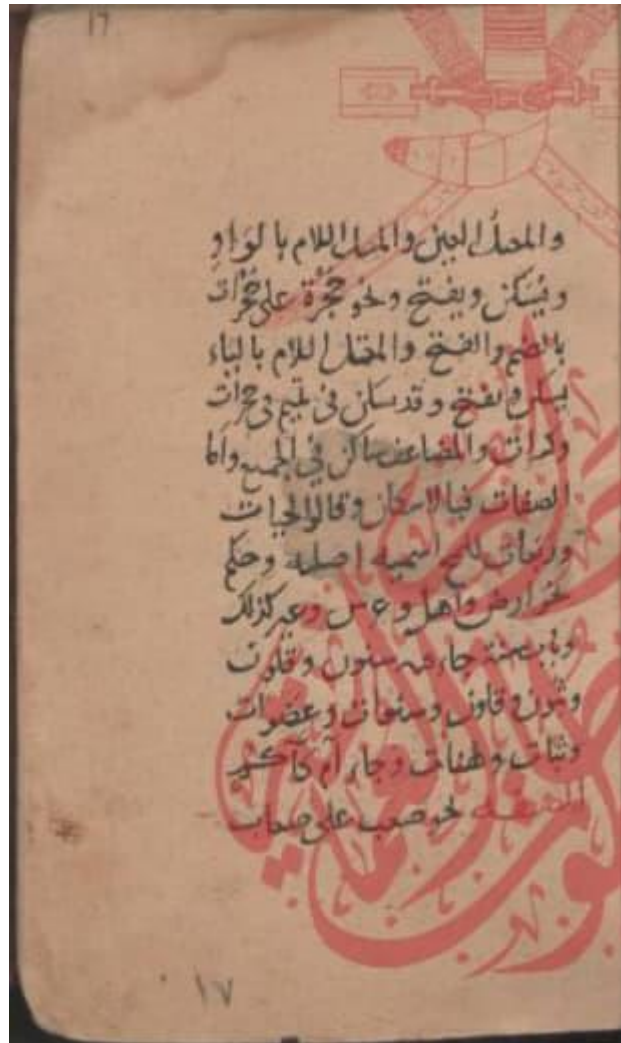 ١٦
والمعتل العين والمعتل اللام بالواو
ويُسكن ويفتح ونحو حُجْرَة على حُجُرات
بالضم والفتح والمعتل اللام بالياء
يسكن ويفتح وقد سكن في تميم في حجرات
وكرات والمضاعف ساكن في الجميع واما
الصفات فبالاسكان وقالوا لجبات
وربعات للمح اسمية اصلية وحكم
نحو ارض واهل وعرس وعير كذلك
وباب سنة جاء فيه سنون وقلون
وثبون وقلون وسنوات وعضوات
وثبات وهنات وجاء آم كآكم
الصفة نحو صعب على صعاب
١٧